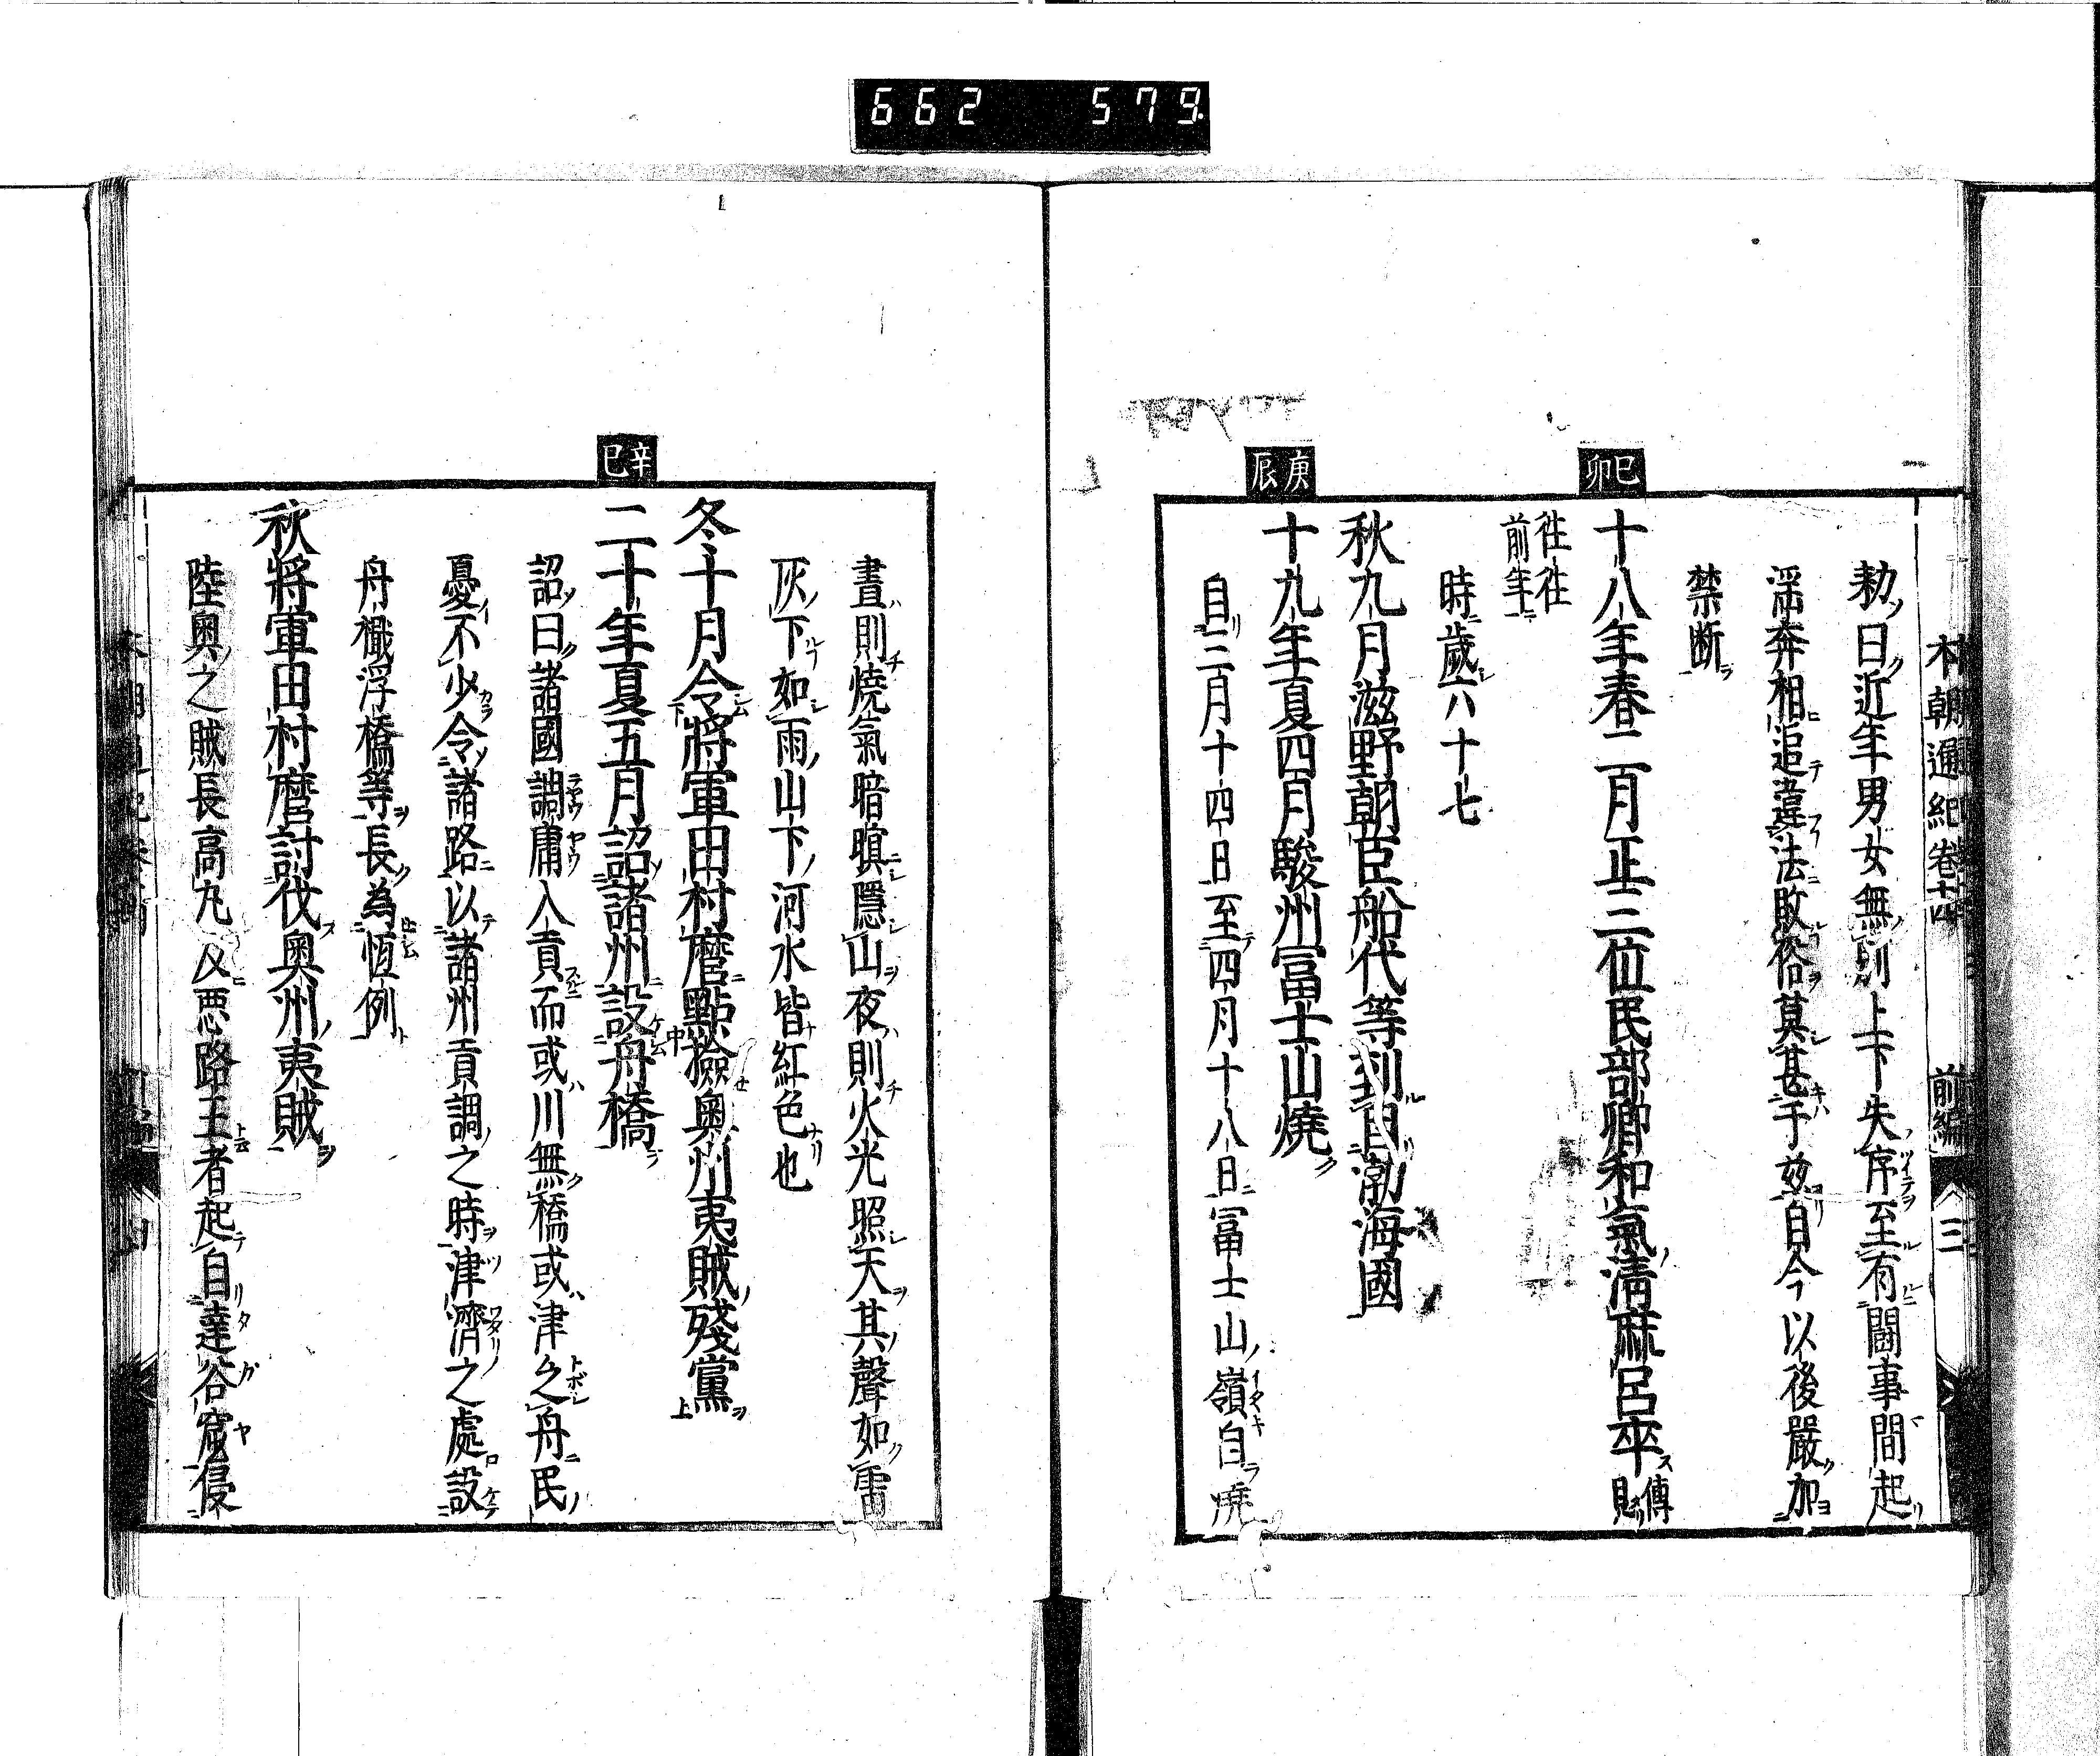 662 579
本朝通紀卷十四 前編 三
勅曰近年男女無別上下失序至有闘事間起
淫奔相追違法敗俗莫甚于玆自今以後嚴加
禁断
己卯
十八年春二月正三位民部卿和氣淸麻呂卒傳財
往往前年
時歲六十七
秋九月滋野朝臣船代等到自渤海國
庚辰
十九年夏四月駿州冨士山燒
自三月十四日至四月十八日冨士山嶺自燒
晝則燒氣暗暝隱山夜則火光照天其聲如雷
灰下如雨山下河水皆紅色也
冬十月令將軍田村麿點撿奥州夷賊殘黨
辛巳
二十年夏五月詔諸州設舟橋
詔曰諸國調庸入貢而或川無橋或津乏舟民
憂不少令諸路以諸州貢調之時津濟之處設
舟檝浮橋等長為恆例
秋將軍田村麿討伐奥州夷賊
陸奥之賊長高丸及悪路王者起自達谷窟侵